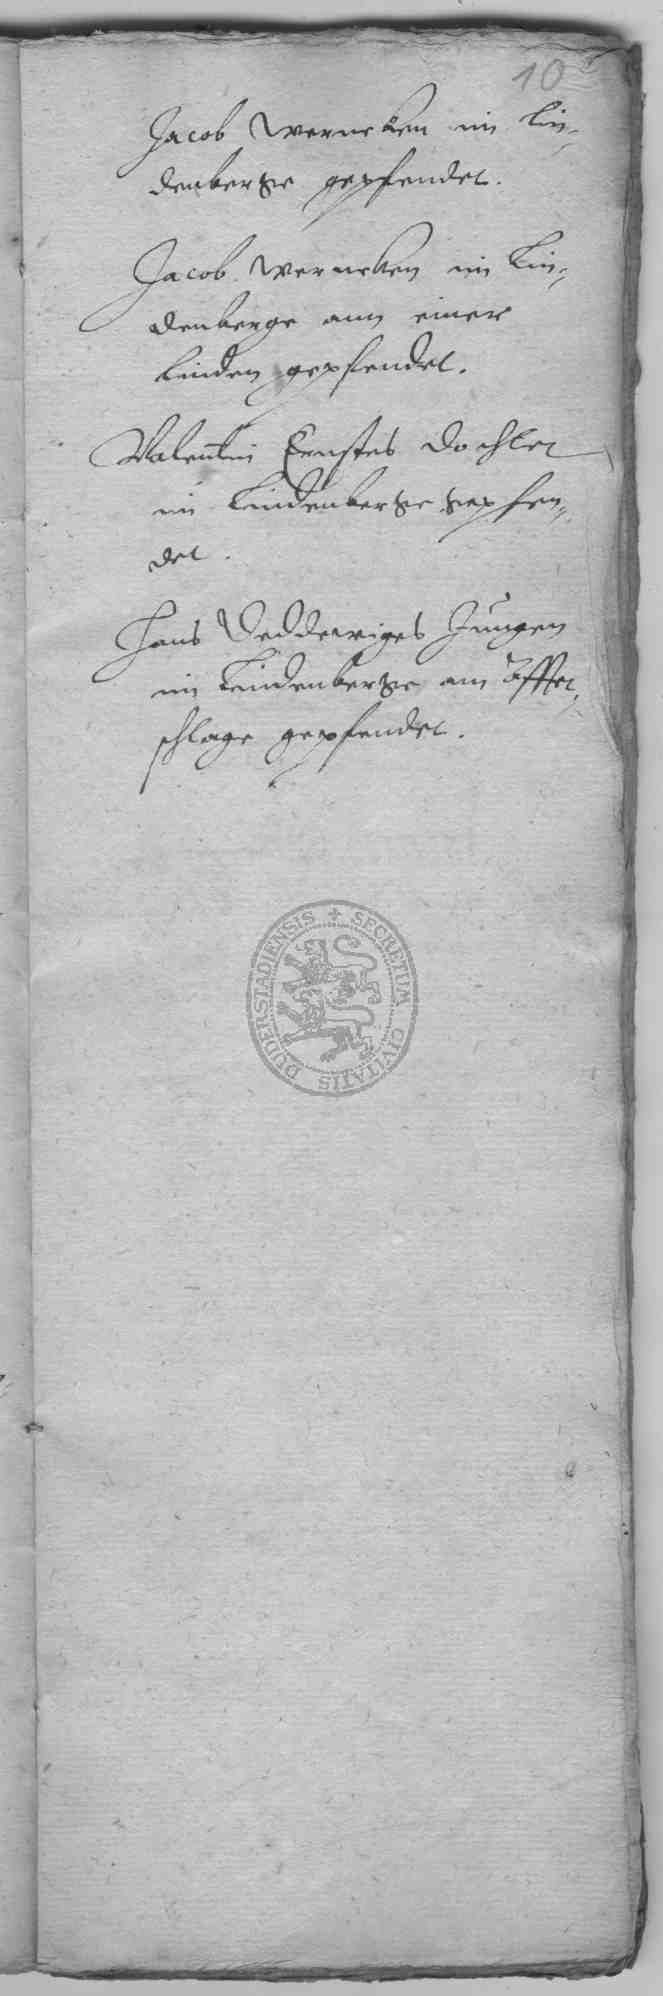 10
Jacob Werneken im Lin-
denberge gepfendet.
Jacob Werneken im Lin-
denberge ann einer
Linden gepfendet.
Valentin Ernstes dochter
im Lindenberge gepfen-
det.
Hans Deddewiges Jungen
im Lindenberge am
schlage gepfendet.
DUDERSTADIENSIS + SECRETUM CIVITATIS